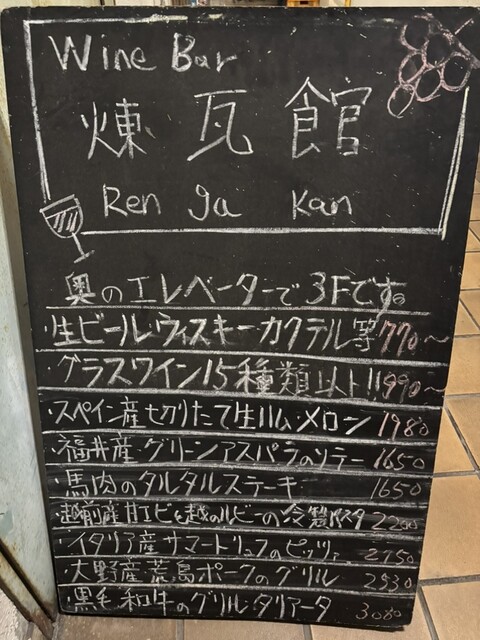 Wine Bar
煉瓦館
Ren ga Kan
奥のエレベーターで3Fです。
生ビール・ウィスキー・カクテル等 770~
・グラスワイン15種類以上!! 990~
・スペイン産切りたて生ハム・メロン 1980
・福井産・グリーンアスパラのソテー 1650
・馬肉のタルタルステーキ 1650
越前産甘エビと越のルビーの冷製パスタ 2200
・イタリア産サマートリュフのピッツァ 2750
・大野産荒島ポークのグリル 2530
・黒毛和牛のグリル・タリアータ 3080